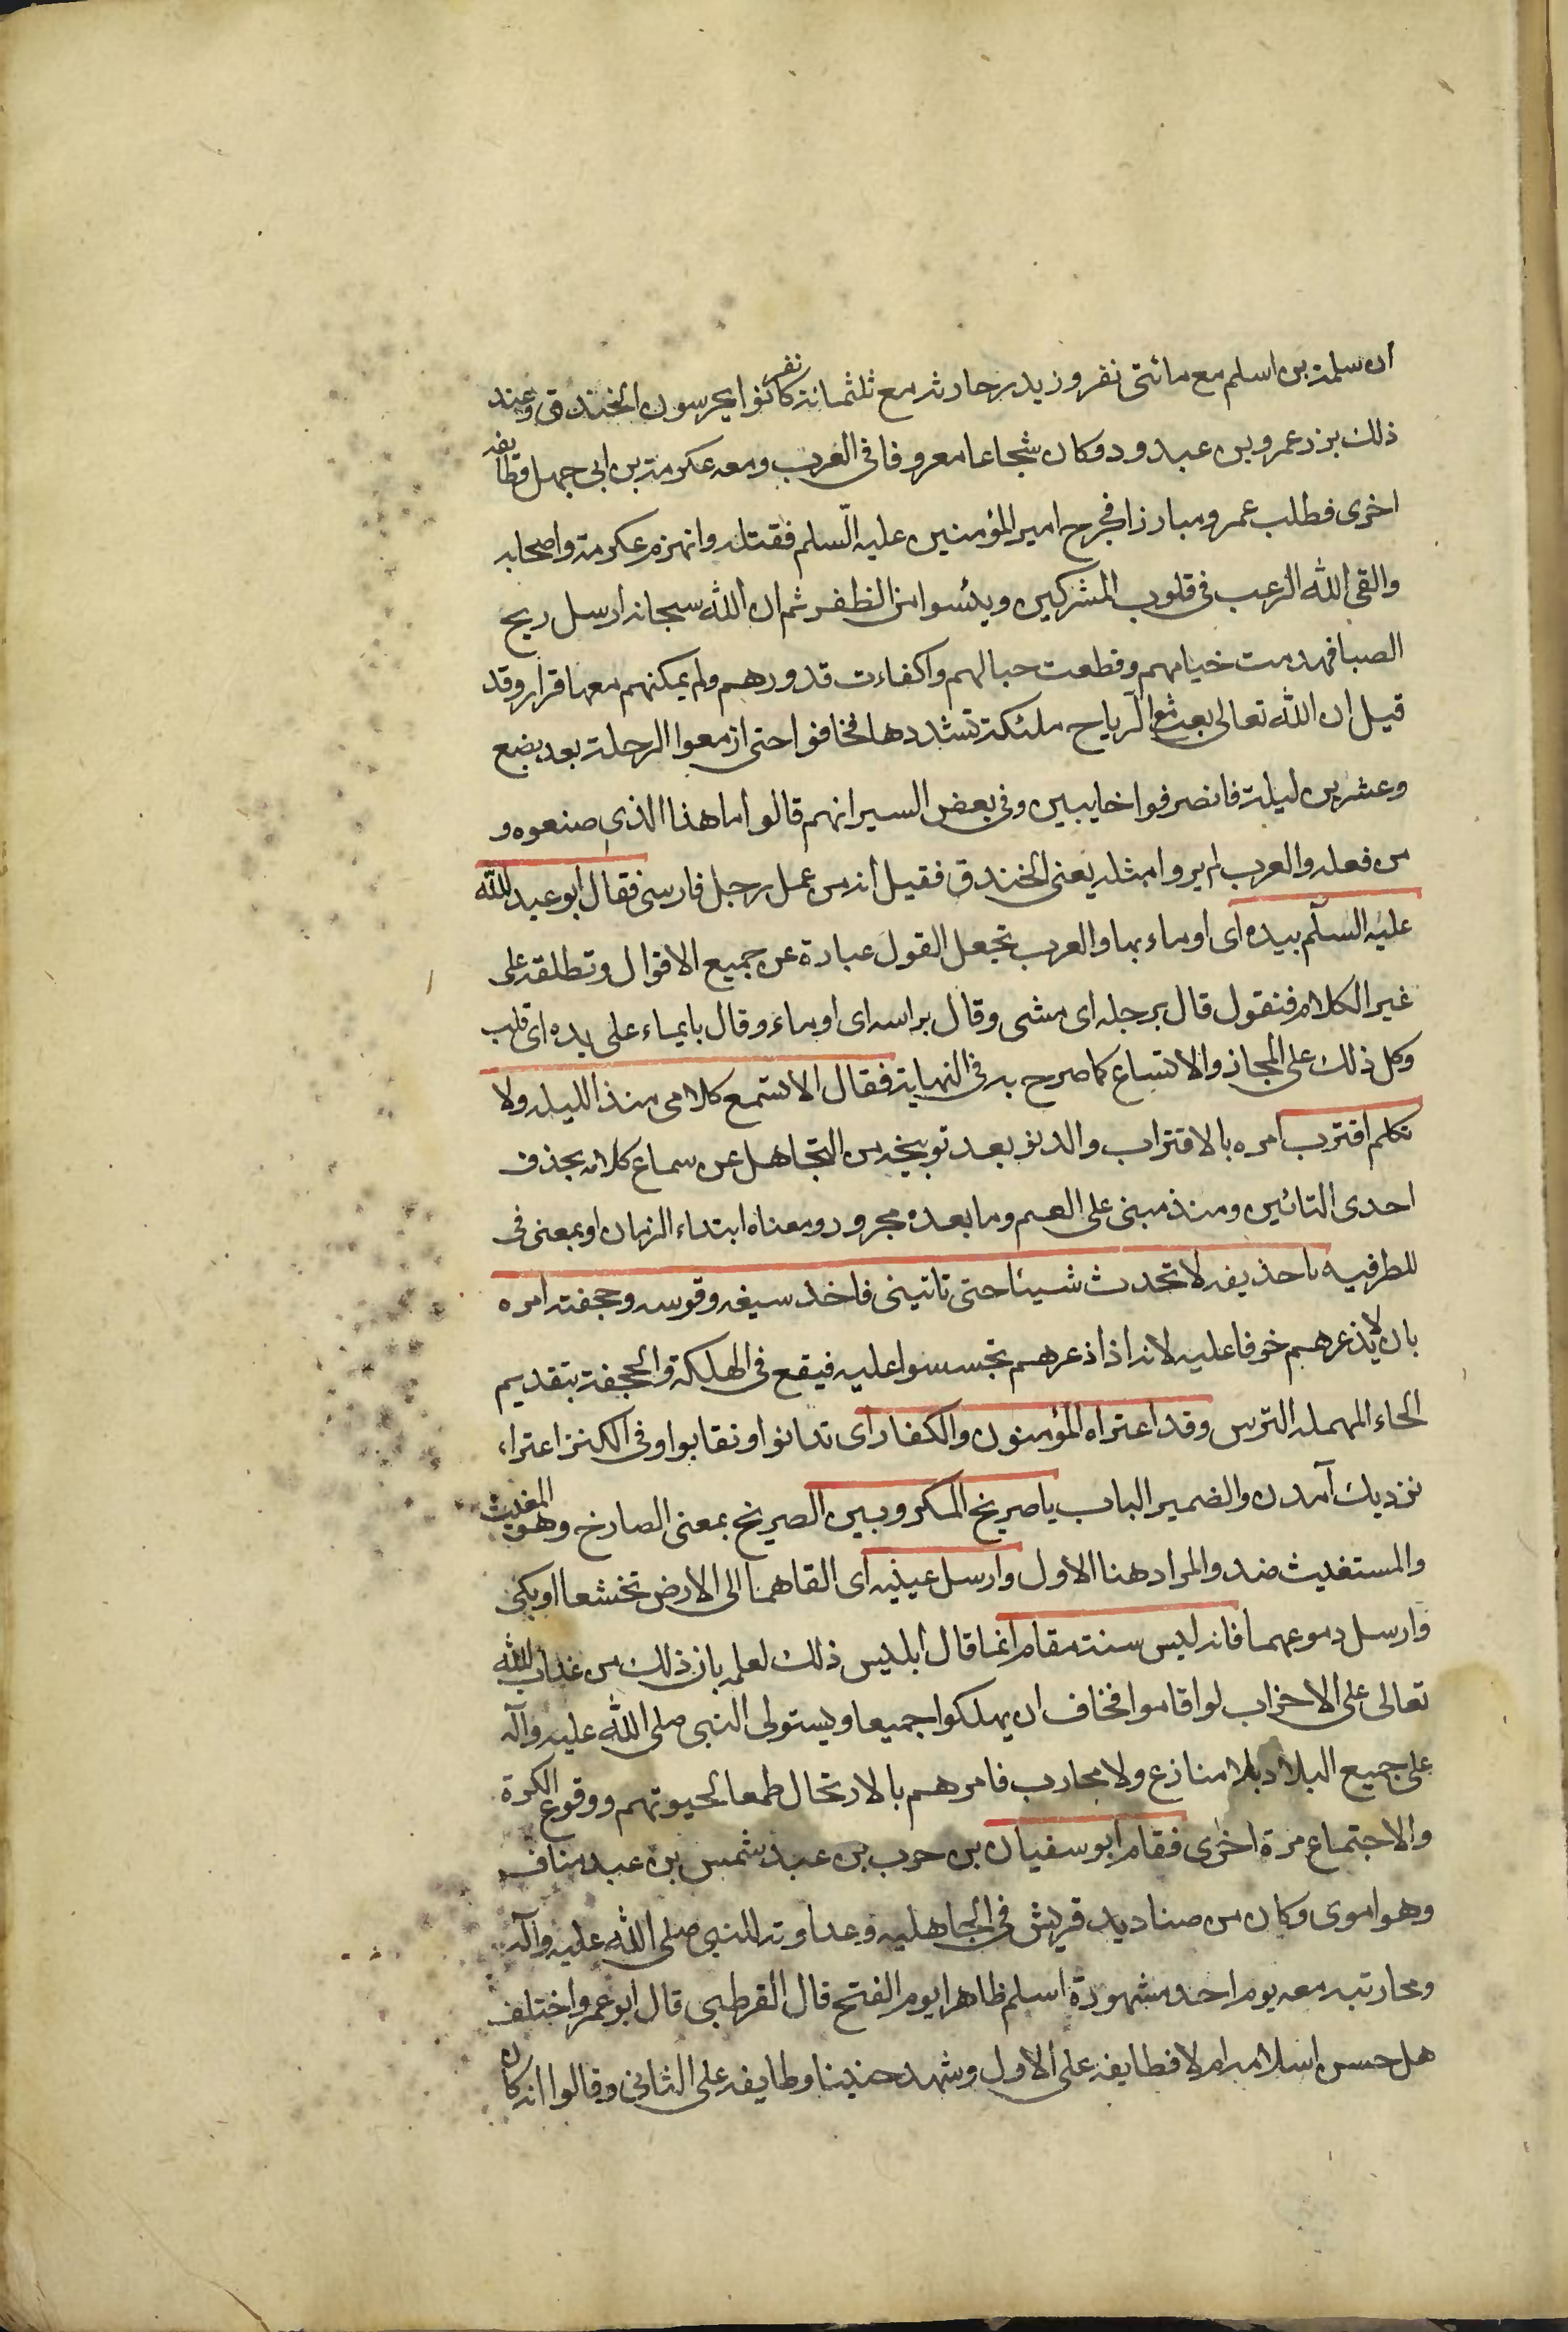 ان سلمة بن اسلم مع مائتى نفر وزيد بن حارثه مع ثلثمائة نفر كانوا يحرسون الخندق وعند
ذلك برز عمرو بن عبد ود وكان شجاعا معروفا فى العرب ومعه عكرمة بن ابى جهل وطايفه
اخرى فطلب عمرو مبارزا فخرج امير المؤمنين عليه السلم فقتله وانهزم عكرمة واصحابه
والقى الله الرعب فى قلوب المشركين ويئسوا من الظفر ثم ان الله سبحانه ارسل ريح
الصبا فهدمت خيامهم وقطعت حبالهم واكفاءت قدورهم ولم يمكنهم معها قرار وقد
قيل ان الله تعالى بعث مع الرياح ملئكة تشددها فخافوا حتى ازمعوا الرحلة بعد بضع
وعشرين ليلة فانصرفوا خايبين وفى بعض السير انهم قالوا ما هذا الذى صنعوه و
من فعله والعرب لم يروا مثله يعنى الخندق فقيل انه من عمل رجل فارسى فقال ابو عبد الله
عليه السلم بيده اى اوماء بها والعرب تجعل القول عبارة عن جميع الاقوال وتطلقه على
غير الكلام فنقول قال برجله اى مشى وقال براسه اى اوماء وقال بايماء على يده اى قلب
وكل ذلك على المجاز والاتساع كما صرح به فى النهاية فقال الا تستمع كلامى منذ الليله ولا
تكلم اقترب امره بالاقتراب والدنو بعد توبيخه من التجاهل عن سماع كلامه بحذف
احدى التائين ومنذ مبنى على الضم وما بعده مجرور ومعناه ابتداء الزمان او بمعنى فى
للظرفيه يا حذيفه لا تحدث شيئا حتى تاتينى فاخذ سيفه وقوسه وحجفته امره
بان لا يذعرهم خوفا عليه لانه اذا ذعرهم تجسسوا عليه فيقع فى الهلكة والحجفة بتقديم
الحاء المهمله الترس وقد اعتراه المؤمنون والكفار اى تدانوا وتقابوا وفى الكنز اعتراء
نزديك آمدن والضمير الباب يا صريخ المكروبين الصريخ بمعنى الصارخ وهو المغيث
والمستغيث ضد والمراد هنا الاول وارسل عينيه اى القاهما الى الارض تخشعا او بكى
وارسل دموعهما فانه ليس سنة مقام انما قال ابليس ذلك لعلمه بان ذلك من عذاب الله
تعالى على الاحزاب لو اقاموا فخاف ان يهلكوا جميعا ويستولى النبى صلى الله عليه وآله
على جميع البلاد بلا منازع ولا محارب فامرهم بالارتحال طمعا لحيوتهم ووقوع الكرة
والاجتماع مرة اخرى فقام ابو سفيان بن حرب بن عبد شمس بن عبد مناف
وهو اموى وكان من صناديد قريش فى الجاهليه وعداوته للنبى صلى الله عليه وآله
ومحاربته معه يوم احد مشهورة اسلم ظاهرا يوم الفتح قال القرطبى قال ابو عمرو اختلف
هل حسن اسلامه ام لا فطايفه على الاول وشهد حنينا وطايفه على الثانى وقالوا انه كان